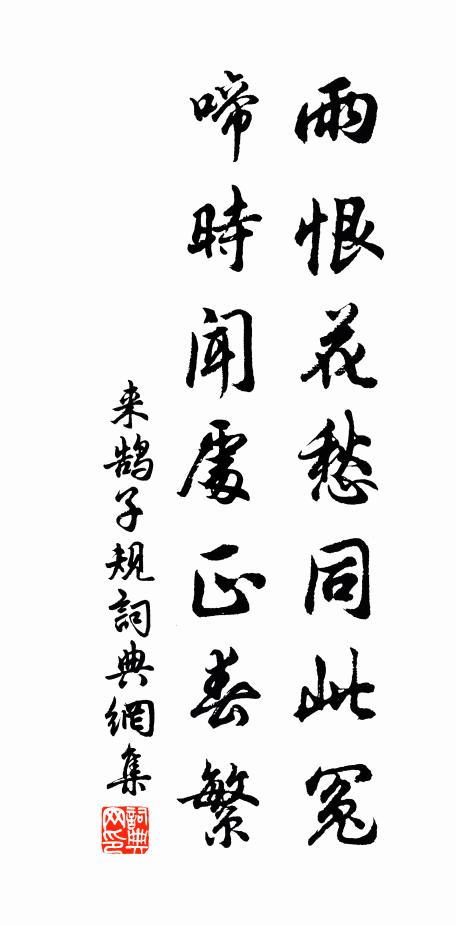 雨恨花愁同此冤
啼時闻處正春繁
来鹄子规詞典網集
詞典网印